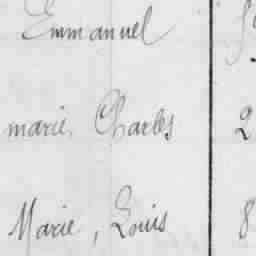 Emmanuel
marie, Charles 2
Marie, Louis 8